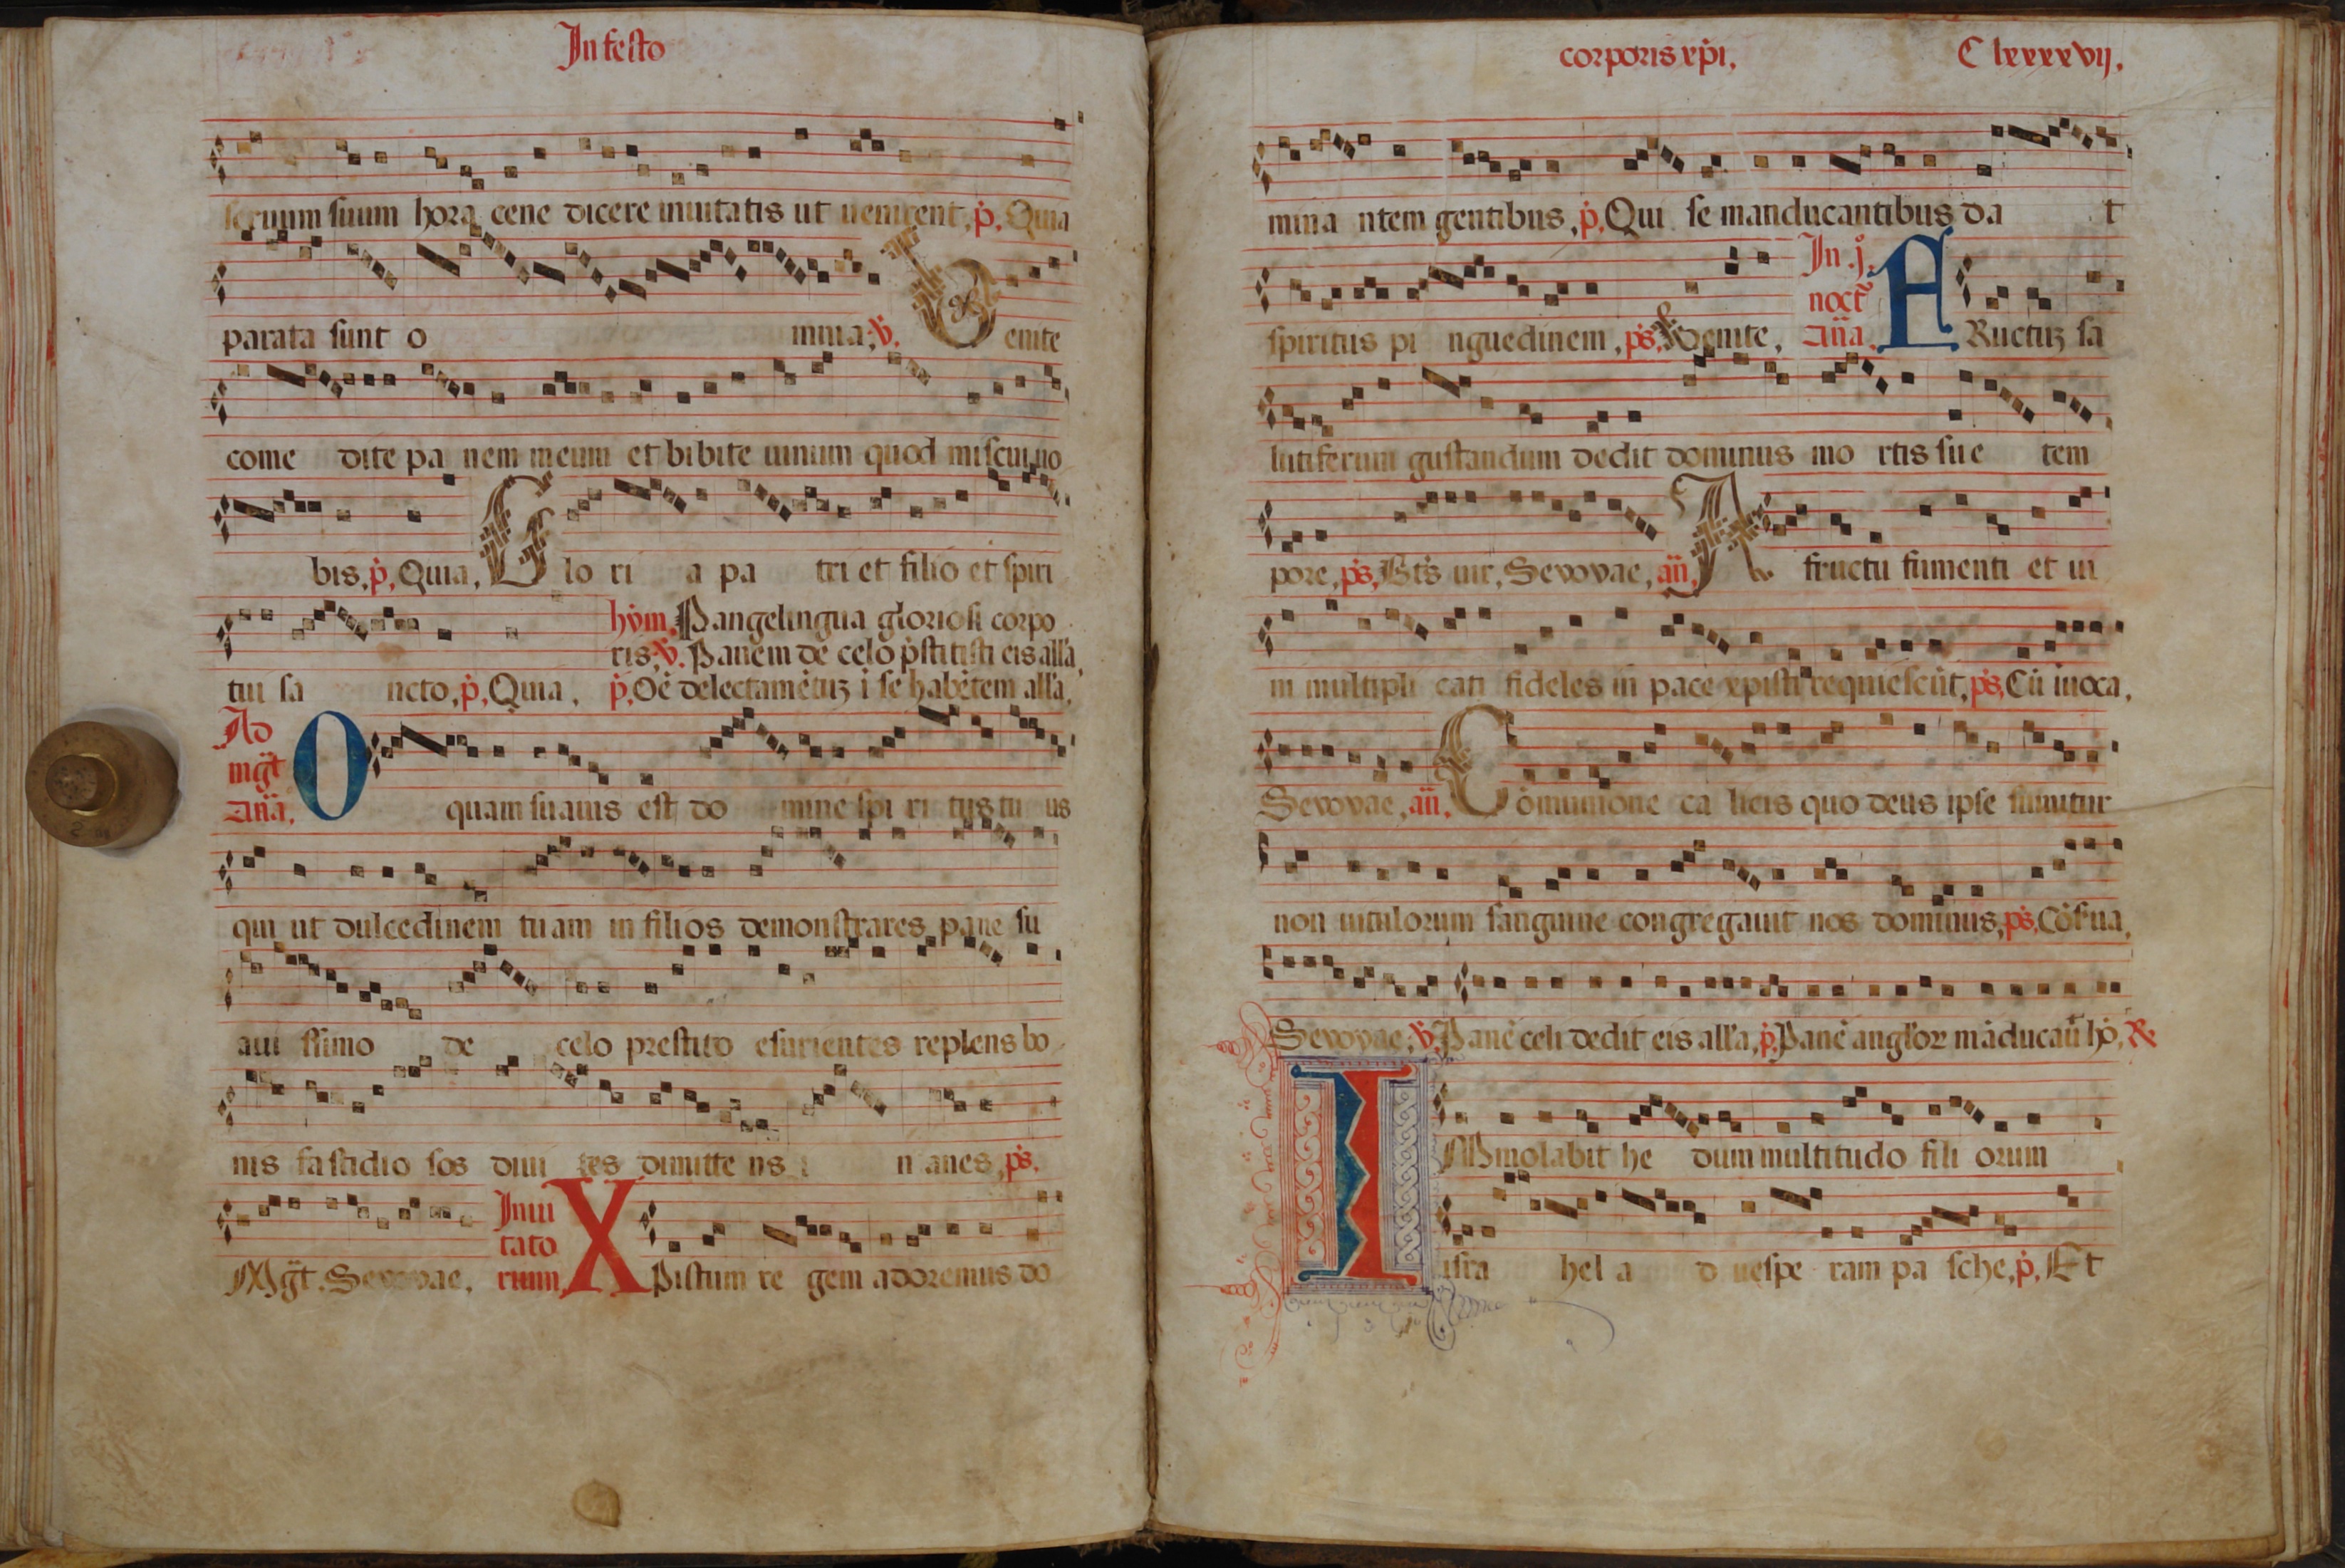 In festo
seruum suum hora cene dicere inuitatis ut uenirent, p̄. Quia
parata sunt o mnia; v̄. Venite
come dite pa nem meum et bibite uinum quod miscui uo
bis, p̄, Quia, Glo ri a pa tri et filio et spiri
hȳm. Pangelingua gloriosi corpo
ris, v̄. Panem de celo p̄stitisti eis all'a,
tui sa ncto, p̄, Quia, p̄, Oē delectamētuꝫ ī se habētem all'a,
Ad mḡt an̄a, O quam suauis est do mine spi ri tus tu us
qui ut dulcedinem tuam in filios demonstrares pane su
aui ssimo de celo prestito esurientes replens bo
nis fastidio sos diui tes dimitte ns i n anes, ps̄.
Mḡt. Seuovae, Inui tato rium, Xpistum re gem adoremus do
corporis xp̄i, C lxxxxvij.
mina ntem gentibus, p̄, Qui se manducantibus da t
spiritus pi nguedinem, ps̄, Venite, In .j. noct̄ an̄a, FRuctuꝫ sa
lutiferum gustandum dedit dominus mo rtis su e tem
pore, ps̄, Bt̄s uir, Seuovae, an̄, A fructu fumenti et ui
ni multipli cati fideles in pace xpisti requiescūt, ps̄, Cū īuoca,
Seuovae, an̄, Cōmunione ca licis quo deus ipse sumitur
non uitulorum sanguine congregauit nos dominus, ps̄, Cōs̄ua,
Seuovae, v̄, Panē celi dedit eis all'a, p̄, Panē angl'oꝝ māducaū hō, ℟
IMmolabit he dum multitudo fili orum
isra hel a d uespe ram pa sche, p̄, Et